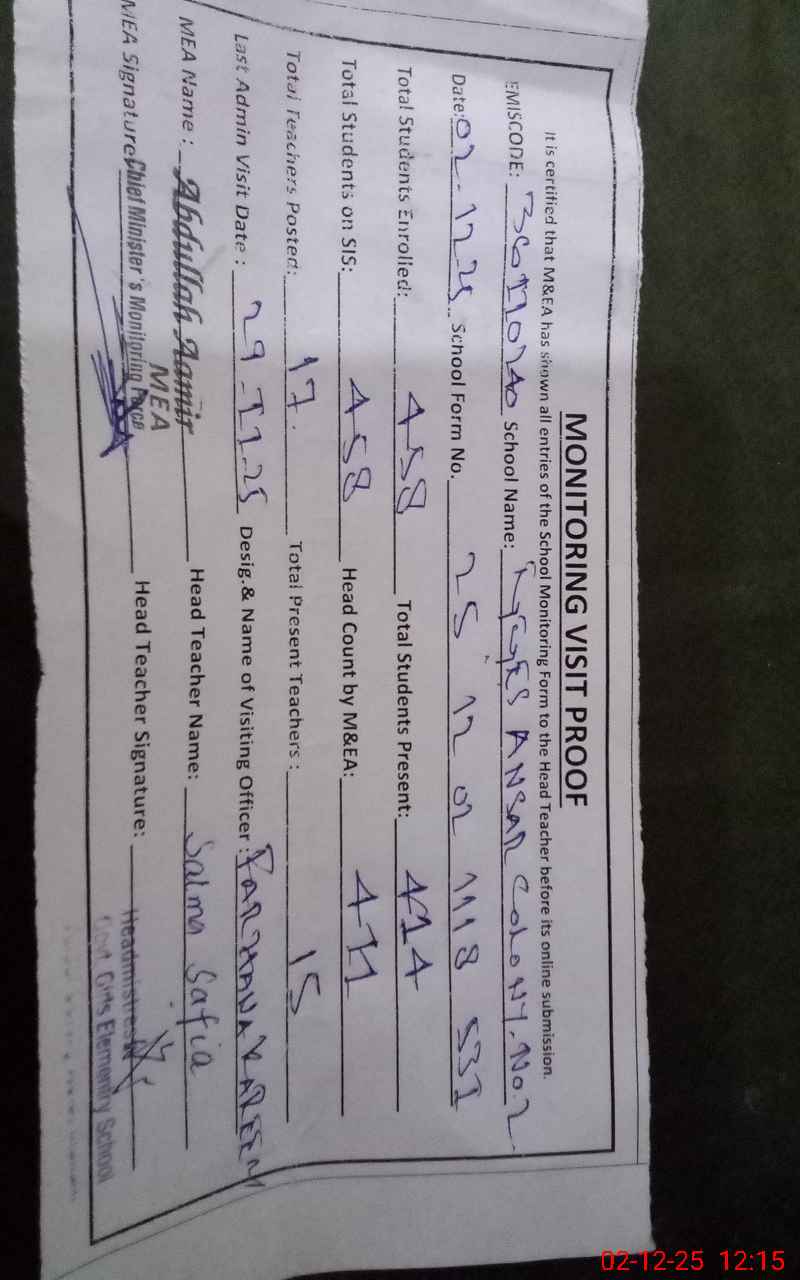 MONITORING VISIT PROOF
It is certified that M&EA has shown all entries of the School Monitoring Form to the Head Teacher before its online submission.
EMISCODE: 36110740 School Name: ANSAR COLONY.No.2
Date: 02-12-25 School Form No. 25 12 02 1118 531
Total Students Enrolled: 458 Total Students Present: 414
Total Students on SIS: 458 Head Count by M&EA: 411
Total Teachers Posted: 17. Total Present Teachers : 15
Last Admin Visit Date : 29-11-25 Desig.& Name of Visiting Officer : FARZHANA KAREEM
MEA Name : Abdullah Aamir Head Teacher Name: Salma Safia
MEA
MEA Signature: Chief Minister's Monitoring Force Head Teacher Signature: Headmistress
Govt. Girls Elementry School
02-12-25 12:15